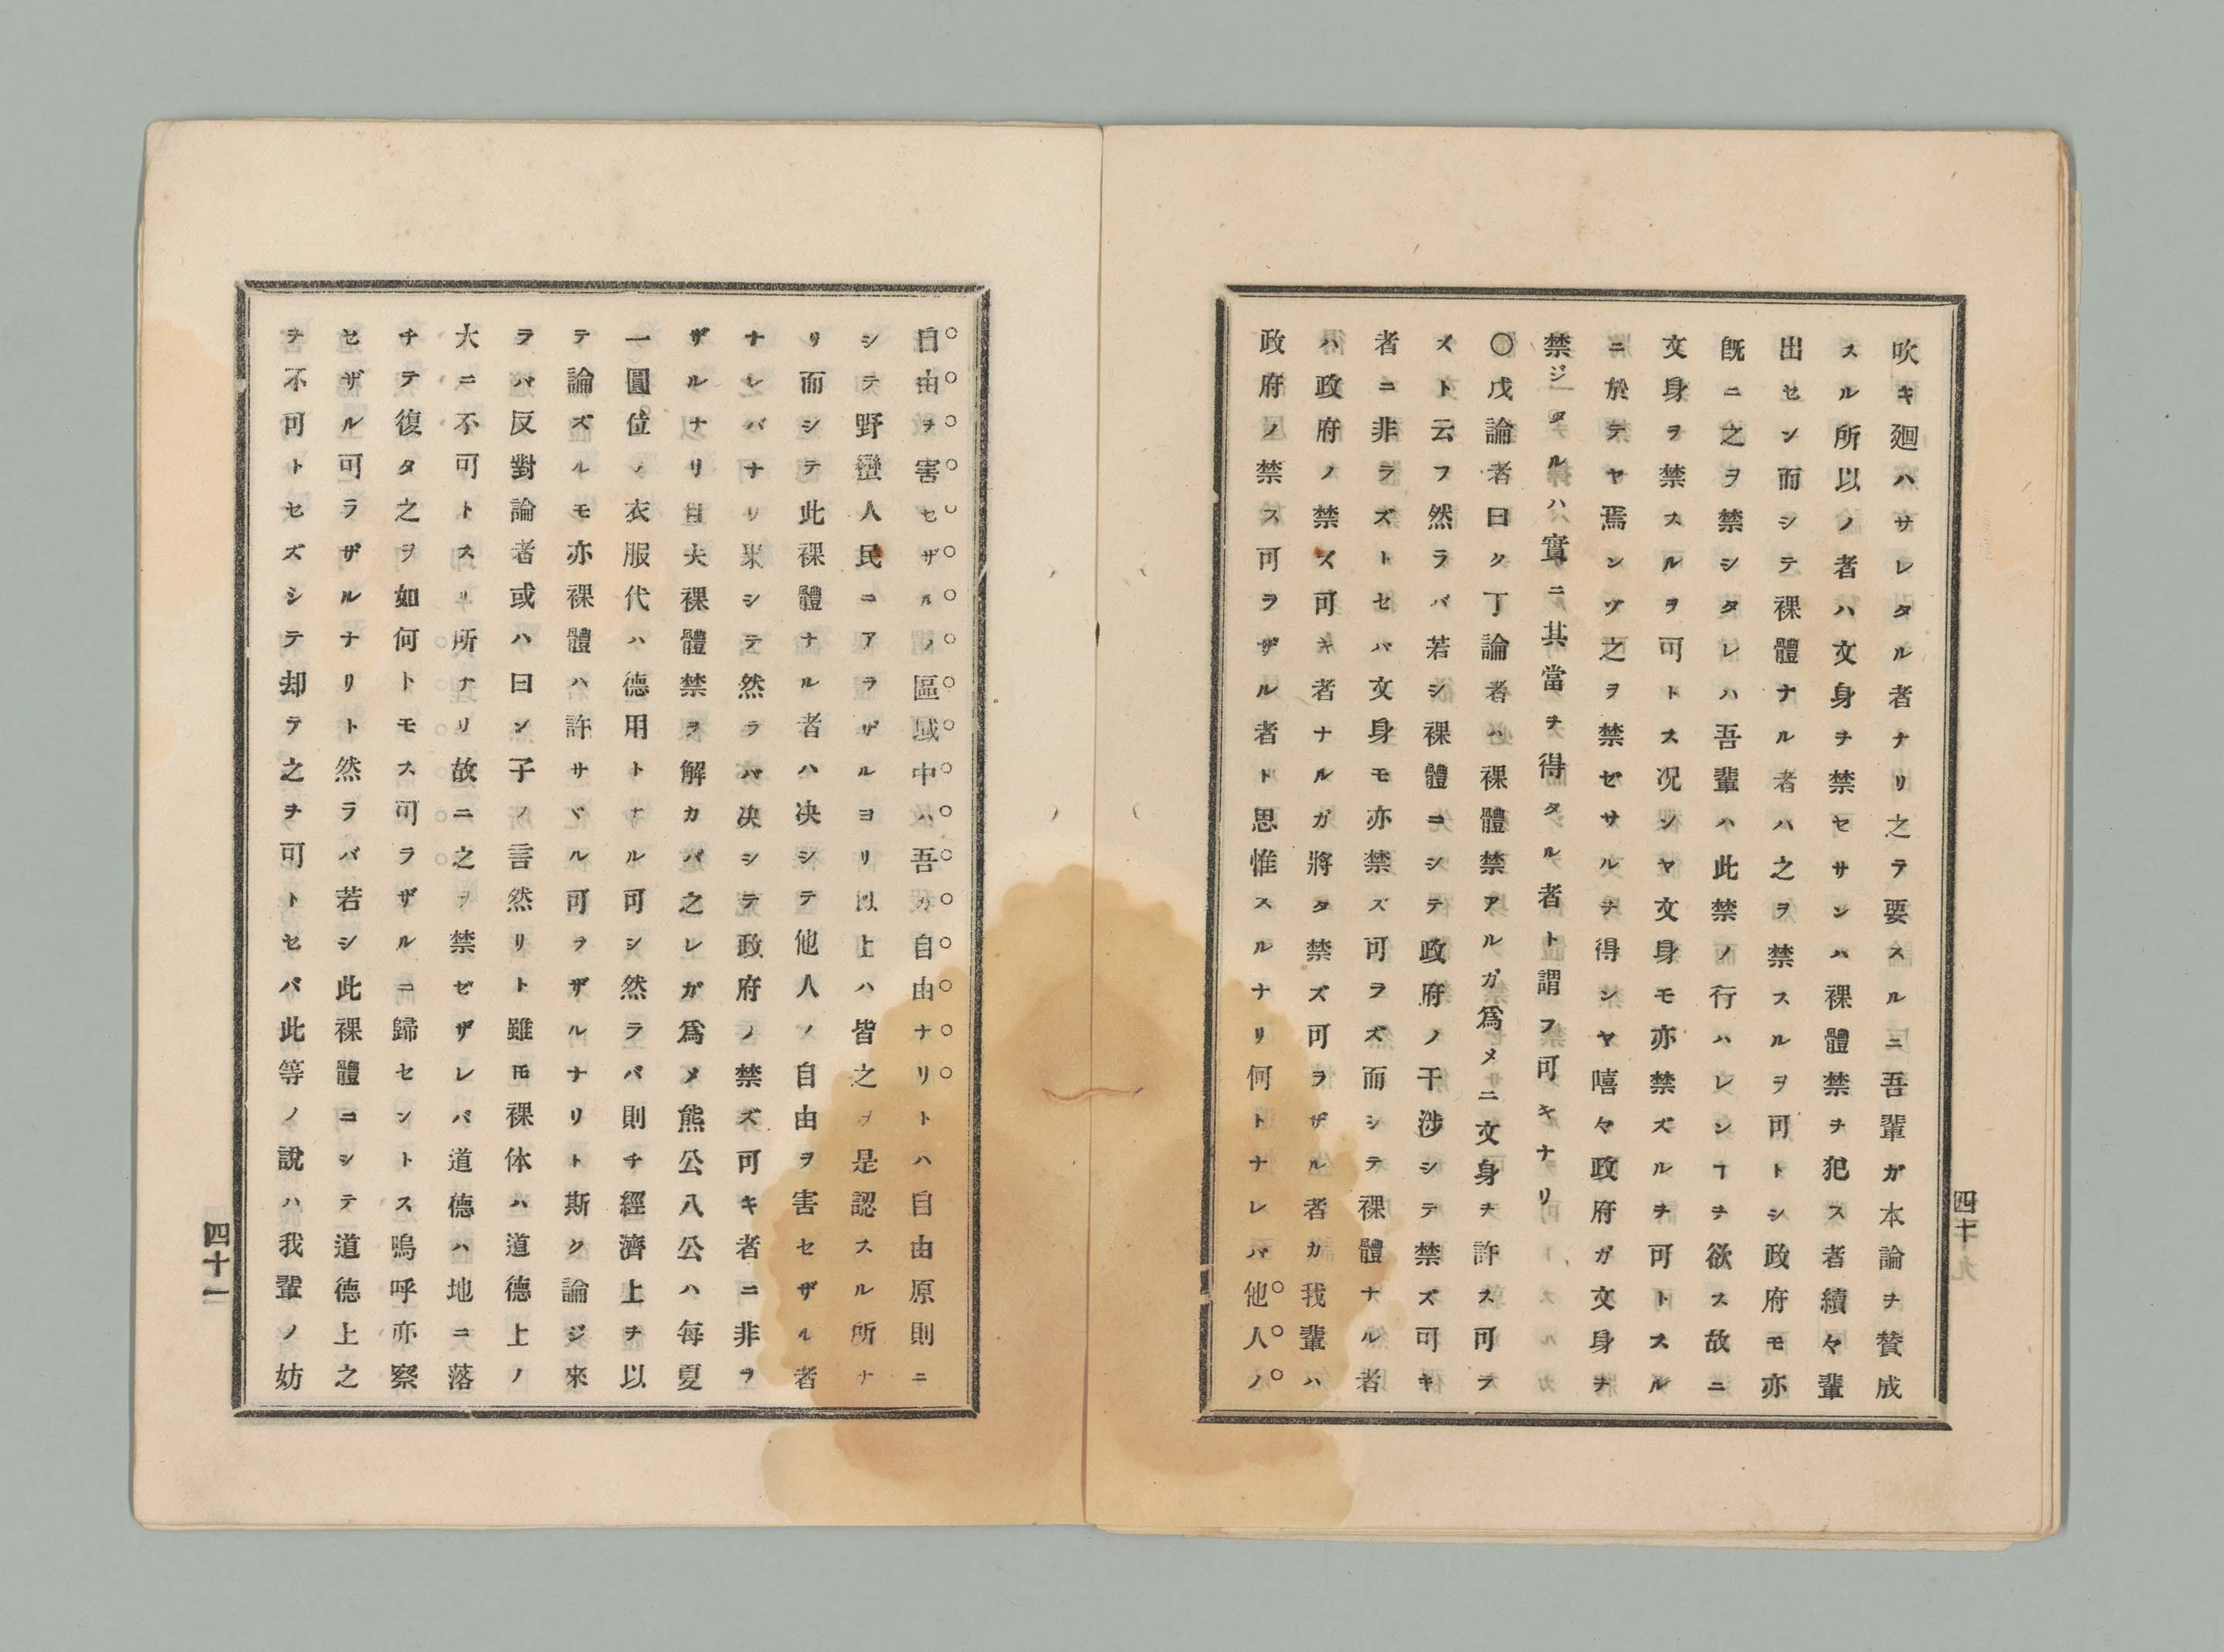 吹キ廻ハサレタル者ナリ之テ要スルニ吾輩ガ本論チ賛成
スル所以ノ者ハ文身チ禁セサンハ裸體禁チ犯ス者續々輩
出セン而シテ裸體ナル者ハ之ヲ禁スルヲ可トシ政府モ亦
既ニ之ヲ禁シタレハ吾輩ハ此禁ノ行ハレンヿチ欲ス故ニ
文身ヲ禁スルヲ可トス况シヤ文身モ亦禁ズルチ可トスル
ニ於テヤ焉ンゾ之ヲ禁ゼサルチ得ンヤ嘻々政府ガ文身チ
禁ジタルハ實ニ其當チ得タル者ト謂フ可キナリ
〇戊論者曰ク丁論者ハ裸體禁アルガ爲メニ文身チ許ス可ラ
ズト云フ然ラバ若シ裸體ニシテ政府ノ干渉シテ禁ズ可キ
者ニ非ラズトセバ文身モ亦禁ズ可ラズ而シテ裸體ナル者
ハ政府ノ禁ズ可キ者ナルガ將タ禁ズ可ラザル者カ我輩ハ
政府ノ禁ス可ラザル者ト思惟スルナリ何トナレバ他人ノ
四十
自由ヲ害セザルノ區域中ハ吾カ自由ナリトハ自由原則ニ
シテ野蠻人民ニアラザルヨリ以上ハ皆之ヲ是認スル所ナ
リ而シテ此裸體ナル者ハ决シテ他人ノ自由ヲ害セザル者
ナレバナリ果シテ然ラバ决シテ政府ノ禁ズ可キ者ニ非ラ
ザルナリ且夫裸體禁ヲ解カバ之レガ爲メ熊公八公ハ毎夏
一圓位ノ衣服代ハ德用トナル可シ然ラバ則チ經濟上チ以
テ論ズルモ亦裸體ハ許サヾル可ラザルナリト斯ク論ジ來
ラバ反對論者或ハ曰ン子ノ言然リト雖𪜈裸体ハ道德上ノ
大ニ不可トスル所ナリ故ニ之ヲ禁ゼザレバ道德ハ地ニ落
チテ復タ之ヲ如何トモス可ラザルニ歸セントス嗚呼亦察
セザル可ラザルナリト然ラバ若シ此裸體ニシテ道德上之
ヲ不可トセズシテ却テ之チ可トセバ此等ノ說ハ我輩ノ妨
四十一